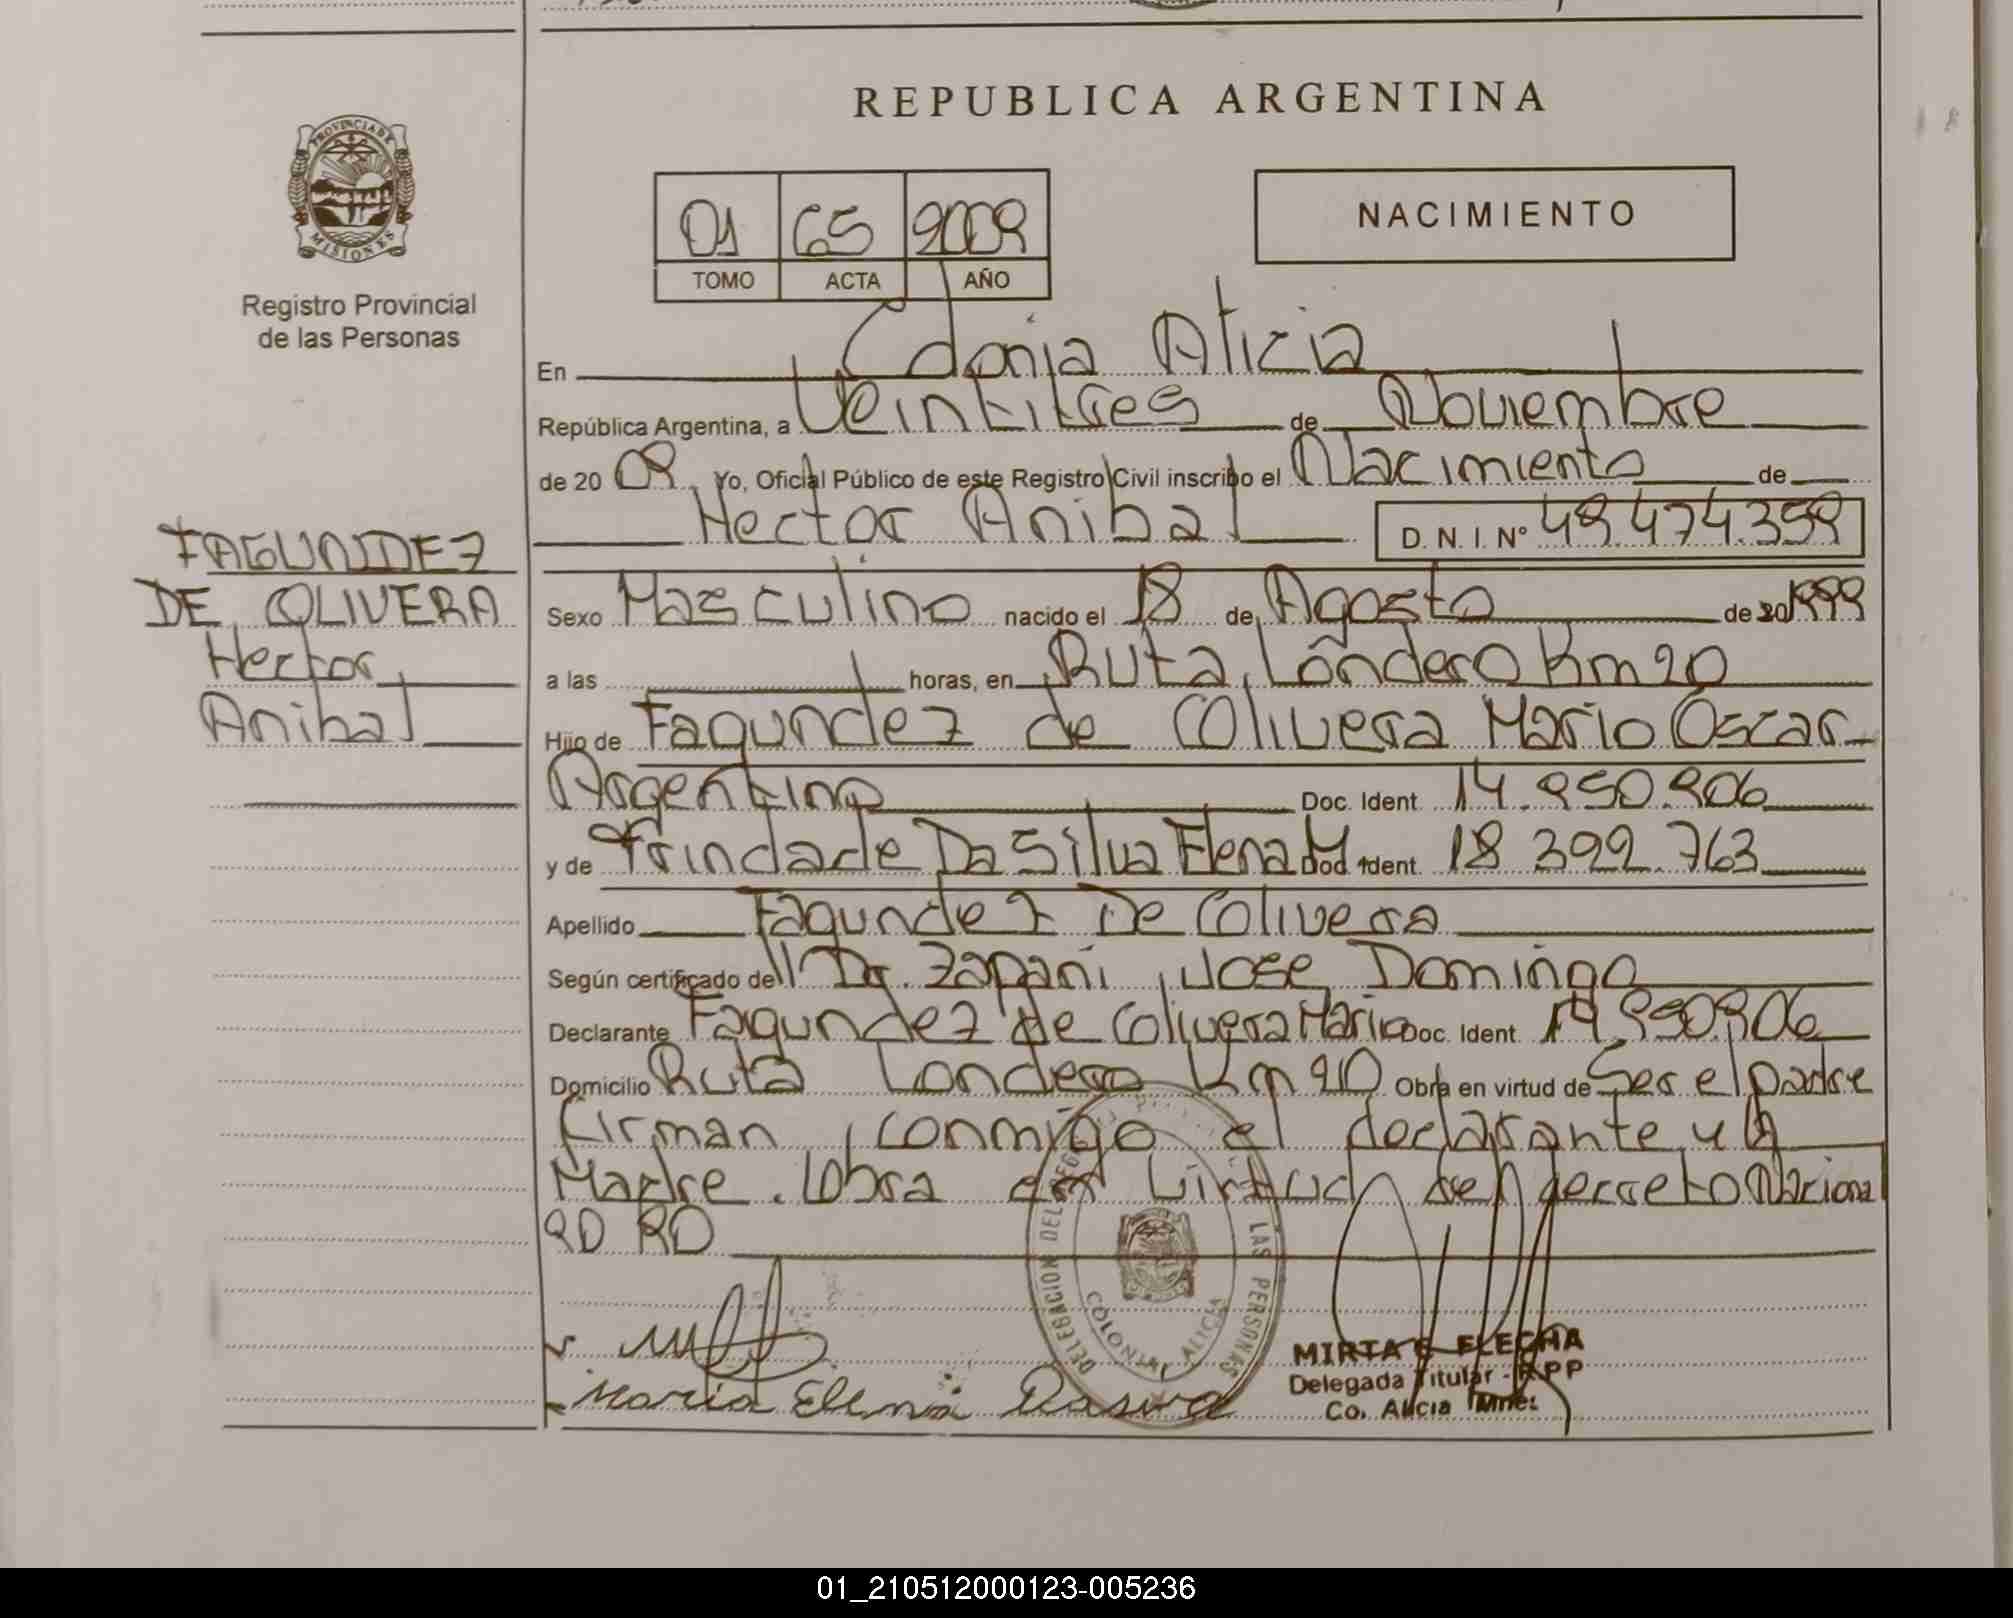 REPUBLICA ARGENTINA
PROVINCIA DE
MISIONES
Registro Provincial
de las Personas
01 65 2009
TOMO ACTA AÑO
NACIMIENTO
En Colonia Alicia
República Argentina, a Veintitres de Noviembre
de 20 09 Yo, Oficial Público de este Registro Civil inscribo el Nacimiento de
Hector Anibal D. N. I. Nº 49.474.359
FAGUNDEZ
DE OLIVERA
Hector
Anibal
Sexo Masculino nacido el 18 de Agosto de 20 1999
a las horas, en Ruta Londero Km 20
Hijo de Fagundez de Olivera Mario Oscar
Argentino Doc. Ident. 14.950.906
y de Trindade Da Silva Elena M Doc. Ident. 18.392.763
Apellido Fagundez De Olivera
Según certificado del Dr. Zapani Jose Domingo
Declarante Fagundez de Olivera Mario Doc. Ident. 14.950.906
Domicilio Ruta Londero Km 20 Obra en virtud de Ser el padre
firman conmigo el declarante y la
Madre. Obra en Virtud del decreto Nacional
90 80
DELEGACION DEL REG LAS PERSONAS
COLONIA ALICIA
Maria Elena Dasilva
MIRTA ELECHA
Delegada Titular - RPP
Co. Alicia Mnes.
01_210512000123-005236